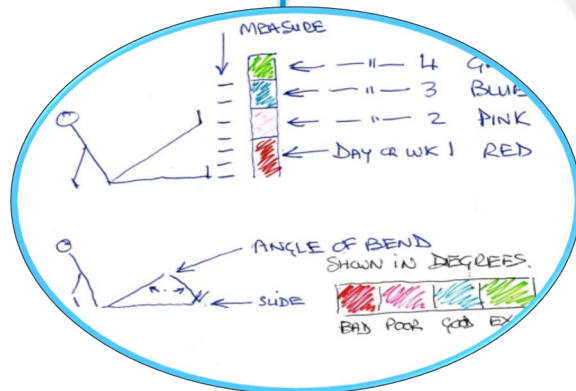 MEASURE
← —〃— 4
← —〃— 3 BLUE
← —〃— 2 PINK
← DAY OR WK 1 RED
ANGLE OF BEND
SHOWN IN DEGREES.
SLIDE
BAD POOR GOOD